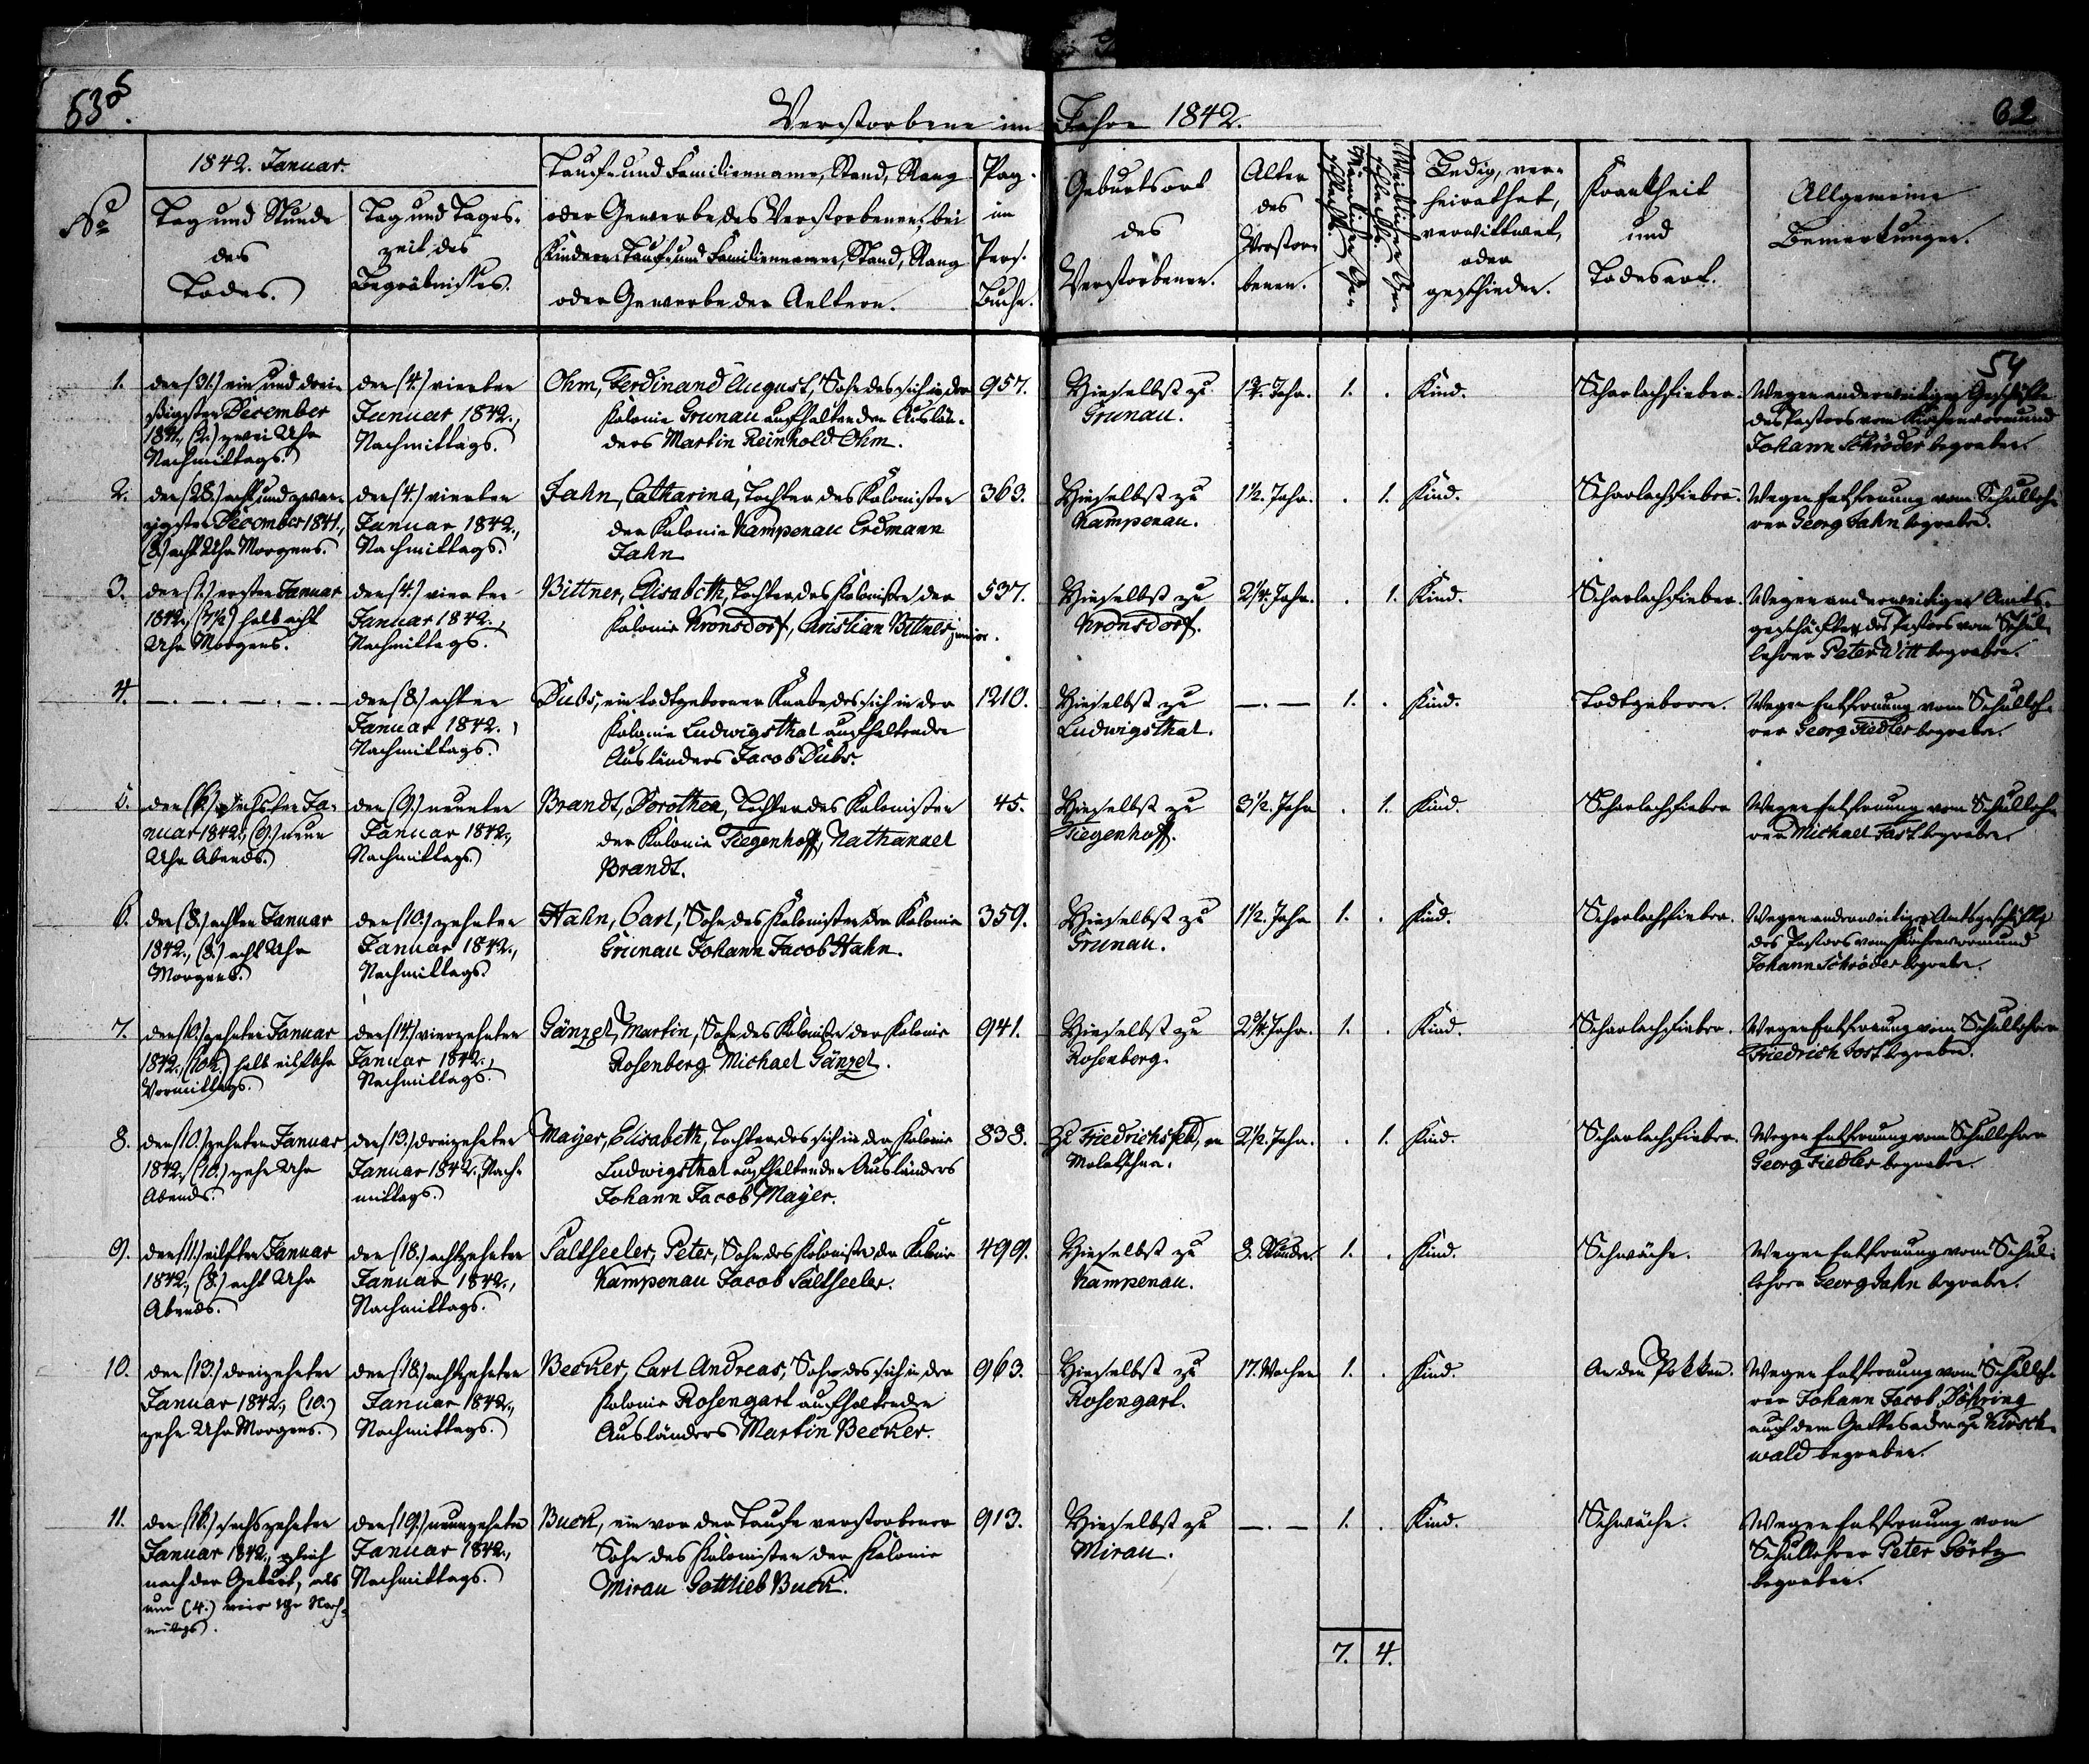 Verstorbene im Jahre 1842.
62
1842. Januar.
No
Tag und Stunde
des
Todes.
Tag und Tages-
zeit des
Begräbnisses.
Tauf- und Familienname, Stand, Rang
oder Gewerbe des Verstorbenen; bei
Kindern: Tauf- und Familienname, Stand, Rang
oder Gewerbe der Aeltern.
Pag.
im
Pers.
Buche.
Geburtsort
des
Verstorbenen.
Alter
des
Verstor-
benen.
Männlichen Ge-
schlechts.
Weiblichen Ge-
schlechts.
Ledig, ver-
heirathet,
verwittwet,
oder
geschieden.
Krankheit
und
Todesart.
Allgemeine
Bemerkungen.
54
1.
den (31.) ein und drei-
ßigsten December
(2.) zwei Uhr
Nachmittags.
den (4.) vierten
Januar 1842.,
Nachmittags.
Ohm, Ferdinand August, Sohn des sich in der
Kolonie Grunau aufhaltenden Auslän-
ders Martin Reinhold Ohm.
957.
Hieselbst zu
Grunau.
Jahr.
1.
.
Kind.
Scharlachfieber.
Wegen anderweitiger Geschäfte
des Pastors vom Kirchenvormund
Johann Schröder begraben.
2.
den (28.) acht und zwan-
zigsten December 1841.,
(8.) acht Uhr Morgens.
den (4.) vierten
Januar 1842.,
Nachmittags.
Jahn, Catharina, Tochter des Kolonisten
der Kolonie Kampenau Erdmann
Jahn
363.
Hieselbst zu
Kampenau.
1½. Jahr.
.
1.
Kind.
Scharlachfieber.
Wegen Entfernung vom Schulleh-
rer Georg Jahn begraben.
3.
den (1.) ersten Januar
1842., (7½) halb acht
Uhr Morgens.
den (4.) vierten
Januar 1842.,
Nachmittags.
Bittner, Elisabeth, Tochter des Kolonisten der
Kolonie Kronsdorf, Christian Bittner, junior.
537.
Hieselbst zu
Kronsdorf.
2¼. Jahr.
.
1.
Kind.
Scharlachfieber.
Wegen anderweitiger Amts-
geschäfte des Pastors vom Schul-
lehrer Peter Witt begraben.
4.
—.—.—.—.—
den (8.) achten
Januar 1842.,
Nachmittags.
Dubs, ein todtgeborner Knabe des sich in der
Kolonie Ludwigsthal aufhaltenden
Ausländers Jacob Dubs.
1210.
Hieselbst zu
Ludwigsthal.
—.—
1.
.
Kind.
Todtgeboren.
Wegen Entfernung vom Schulleh-
rer Georg Fiedler begraben.
5.
den (6.) sechsten Ja-
nuar 1842., (9.) neun
Uhr Abends.
den (9.) neunten
Januar 1842.,
Nachmittags.
Brandt, Dorothea, Tochter des Kolonisten
der Kolonie Tiegenhoff, Nathanael
Brandt.
45.
Hieselbst zu
Tiegenhoff.
3½. Jahr
.
1.
Kind.
Scharlachfieber
Wegen Entfernung vom Schulleh-
rer Michael Fast begraben.
6.
den (8.) achten Januar
1842., (8.) acht Uhr
Morgens.
den (10.) zehnten
Januar 1842.,
Nachmittags.
Hahn, Carl, Sohn des Kolonisten der Kolonie
Grunau Johann Jacob Hahn.
359.
Hieselbst zu
Grunau.
1½. Jahr
1.
.
Kind.
Scharlachfieber.
Wegen anderweitiger Amtsgeschäfte
des Pastors vom Kirchenvormund
Johann Schröder begraben.
7.
den (10.) zehnten Januar
1842., (10½.) halb eilf Uhr
Vormittags.
den (14.) vierzehnten
Januar 1842.,
Nachmittags.
Gänzel, Martin, Sohn des Kolonisten der Kolonie
Rosenberg Michael Gänzel.
941.
Hieselbst zu
Rosenberg.
2¾. Jahr.
1.
.
Kind.
Scharlachfieber.
Wegen Entfernung vom Schullehrer
Friedrich begraben.
8.
den (10.) zehnten Januar
1842., (10.) zehn Uhr
Abends.
den (13.) dreizehnten
Januar 1842., Nach-
mittags.
Mayer, Elisabeth, Tochter des sich in der Kolonie
Ludwigsthal aufhaltenden Ausländers
Johann Jacob Mayer.
838.
Zu Friedrichsfeld, an
Molotschna.
2½. Jahr.
.
1.
Kind.
Scharlachfieber.
Wegen Entfernung vom Schullehrer
Georg Fiedler begraben.
9.
den (11.) eilften Januar
1842., (8.) acht Uhr
Abends.
den (18.) achtzehnten
Januar 1842.,
Nachmittags.
Saltseeler, Peter, Sohn des Kolonisten der Kolonie
Kampenau Jacob Saltseeler.
499.
Hieselbst zu
Kampenau.
8. Stunden.
1.
.
Kind.
Schwäche.
Wegen Entfernung vom Schul-
lehrer Georg Jahn begraben.
10.
den (13.) dreizehnten
Januar 1842., (10.)
zehn Uhr Morgens.
den (18.) achtzehnten
Januar 1842.,
Nachmittags.
Becker, Carl Andreas, Sohn des sich in der
Kolonie Rosengart aufhaltenden
Ausländers Martin Becker.
963.
Hieselbst zu
Rosengart.
17. Wochen
1.
.
Kind.
An den Pokken.
Wegen Entfernung vom Schulleh-
rer Johann Jacob Döhring
auf dem Gottesacker zu Kirsch-
wald begraben.
11.
den (16.) sechszehnten
Januar 1842., gleich
nach der Geburt, als
um (4.) vier Uhr Nach-
mittags.
den (19.) neunzehnten
Januar 1842.,
Nachmittags.
Buck, ein vor der Taufe verstorbener
Sohn des Kolonisten der Kolonie
Mirau Gottlieb Buck.
913.
Hieselbst zu
Mirau.
—.—
1.
.
Kind.
Schwäche.
Wegen Entfernung vom
Schullehrer Peter Görtz
begraben.
7.
4.